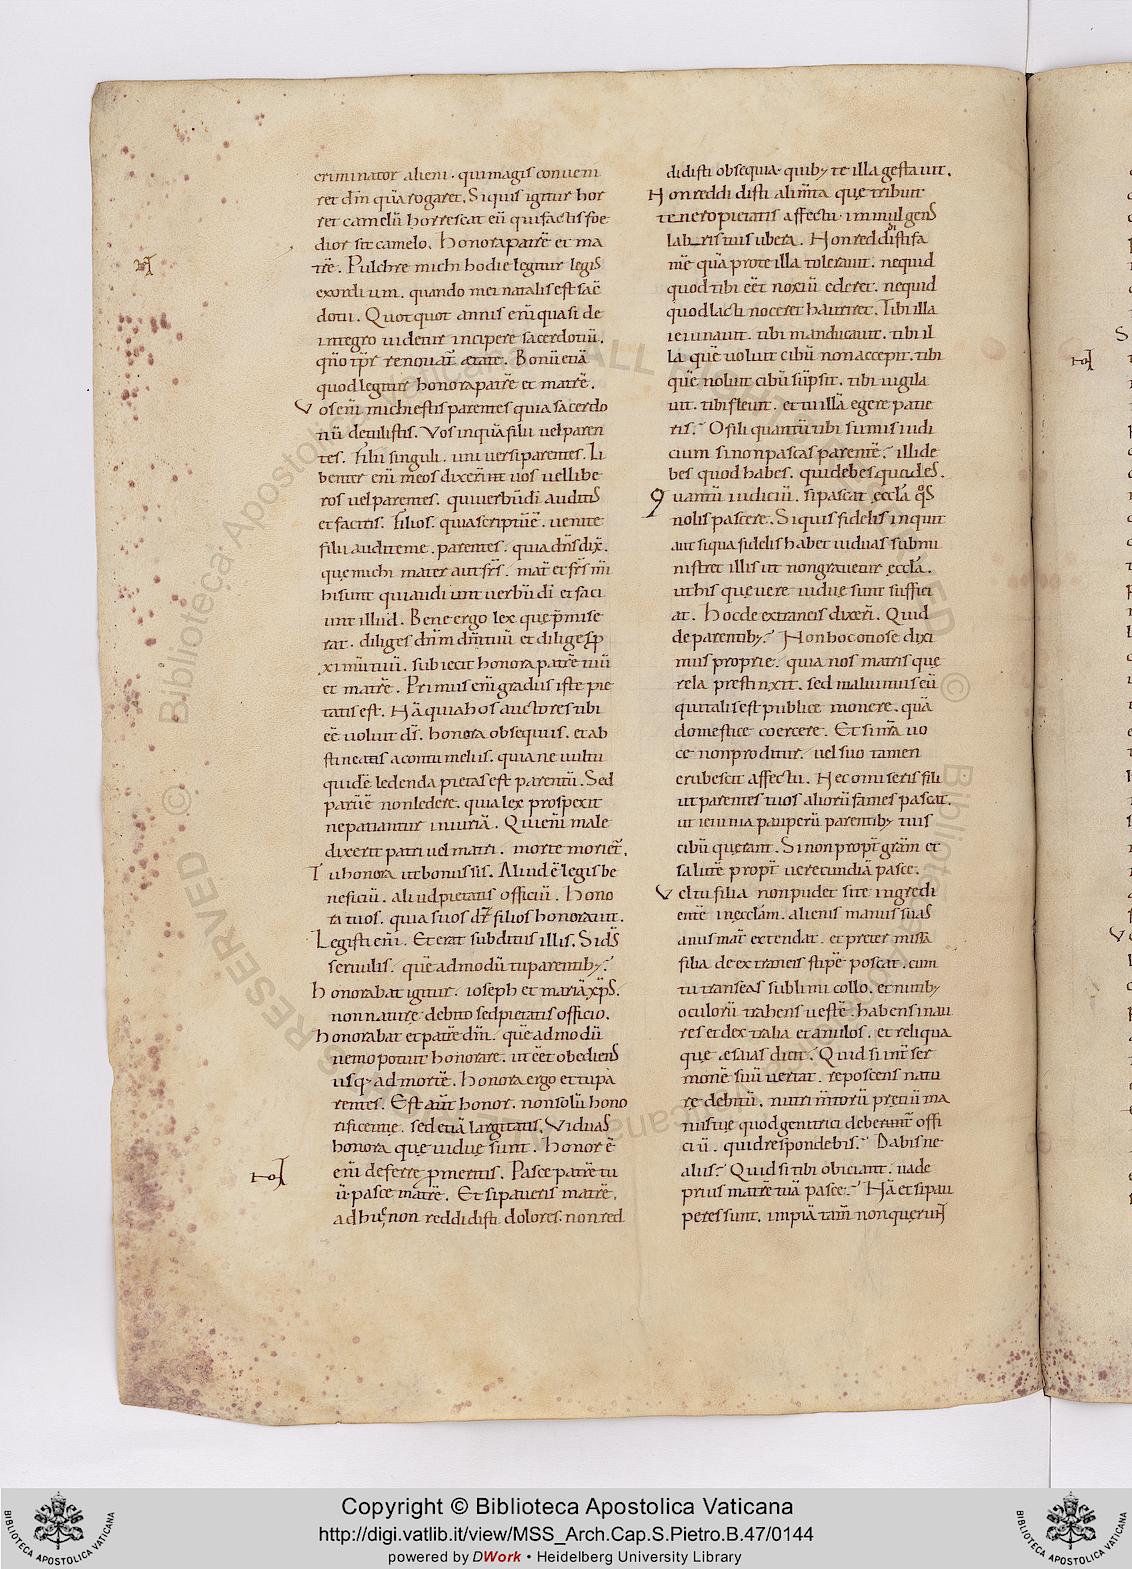 criminator alieni. qui magis conueni
ret dm̄ quā rogaret. Siquis igitur hor
ret camelū horrescat eū qui factis foe
dior sit camelo. Honora patrē et ma
trē. Pulchre michi hodie legitur legis
exordium. quando mei natalis est sac̄
dotii. Quotquot annis enī quasi de
integro uidetur incipere sacerdotiū.
qn̄o tp̄r renouat̄ ætate. Bonū etiā
quod legitur honora patrē et matrē.
Vos enī michi estis parentes quia sacerdo
tiū detulistis. Vos inquā filii uel paren
tes. filii singuli. uniuersi parentes. Li
benter enī meos dixerint uos uel libe
ros uel parentes. qui uerbū di auditis
et facitis. filios. quia scriptū ē. uenite
filii audite me. parentes. quia dn̄s dix̄.
quę michi mater aut frs̄. mat̄ et frs̄ mī
hi sunt qui audiunt uerbū di et faci
unt illud. Bene ergo lex quę p̄mise
rat. diliges dn̄m dm̄ tuū et diliges p
ximū tuū. subiecit honora patrē tuū
et matrē. Primus enī gradus iste pie
tatis est. Nā quia hos auctores tibi
eē uoluit ds̄. honora obsequiis. et ab
stineatis a contumeliis. quia ne uultu
quidē ledenda pietas est parentū. Sed
parū ē non ledere. quia lex prospexit
ne patiantur iniuriā. Qui enī male
dixerit patri uel matri. morte moriet̄.
Tu honora ut bonus sis. Aliud ē legis be
neficiū. aliud pietatis officiū. Hono
ra tuos. quia suos ds̄ filios honorauit.
Legisti enī. Et erat subditus illis. Si ds̄
seruulis. quē admodū tu parentib;?
Honorabat igitur. ioseph et mariā xp̄s.
non naturę debito sed pietatis officio.
Honorabat et patrē dm̄. quē admodū
nemo potuit honorare. ut eēt obediens
usq; ad mortē. Honora ergo et tu pa
rentes. Est aut̄ honor. non solū hono
rificentię. sed etiā largitatis. Viduas
honora quę uiduę sunt. Honor ē
enī deferre p meritis. Pasce patrē tu
ū. pasce matrē. Et si paueris matrē.
adhuc non reddidisti dolores. non red
didisti obsequia. quib; te illa gestauit.
Non reddidisti alim̄ta quę tribuit
tenero pietatis affectu. inmulgens
labris tuis ubera. Non reddidisti fa
mē quā pro te illa tolerauit. ne quid
quod tibi eēt noxiū ederet. ne quid
quod lacti noceret hauriret. Tibi illa
ieiunauit. tibi manducauit. tibi il
la quē uoluit cibū non accepit. tibi
quē noluit cibū sūpsit. tibi uigila
uit. tibi fleuit. et tu illā egere patie
ris? O fili quantū tibi sumis iudi
cium si non pascas parentē? illi de
bes quod habes. qui debes quod es.
Quantū iudiciū. si pascat ęccla q̊s
nolis pascere. Siquis fidelis inquit
aut siqua fidelis habet uiduas submi
nistret illis ut non grauetur ęccla.
ut his quę uere uiduę sunt suffici
at. Hoc de extraneis dixerī. Quid
de parentib;? Non hoc otiose dixi
mus proprie. quia nos matris que
rela prestinxit. sed maluimus eū
qui talis est publice monere. quā
domestice coercere. Et si nr̄a uo
ce non proditur. uel suo tamen
erubescit affectu. Ne comiseris fili
ut parentes tuos aliorū fames pascat.
ut ieiunia pauperū parentib; tuis
cibū querant. Si non propt̄ grām et
salutē propt̄ uerecundiā pasce.
Vel tu filia non pudet si te ingredi
entē in ęcclam. alienis manus suas
anus mat̄ extendat. et preter missā
filia de extraneis stipē poscat. cum
tu transeas sublimi collo. et nutib;
oculorū trahens uestē. habens inau
res et dextralia et anulos. et reliqua
quę æsaias dicit? Quid si int̄ ser
monē suū uertat. reposcens natu
rę debitū. nutrimtorū pręciū ma
nusue quod genitrici deberunt̄ offi
ciū. quid respondebis? Dabis ne
aliis? Quid si tibi obiciant. uade
prius matrē tuā pasce? Nā et si pau
peres sunt. impiā tam̄ non querunt
Copyright © Biblioteca Apostolica Vaticana
http://digi.vatlib.it/view/MSS_Arch.Cap.S.Pietro.B.47/0144
powered by DWork • Heidelberg University Library
BIBLIOTECA APOSTOLICA VATICANA
BIBLIOTECA APOSTOLICA VATICANA
© Biblioteca Apostolica Vaticana ALL RIGHTS RESERVED